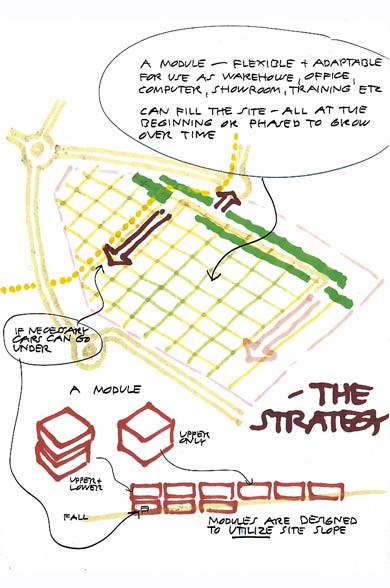 A MODULE — FLEXIBLE + ADAPTABLE
FOR USE AS WAREHOUSE, OFFICE,
COMPUTER, SHOWROOM, TRAINING, ETC
CAN FILL THE SITE — ALL AT THE
BEGINNING OR PHASED TO GROW
OVER TIME
IF NECESSARY
CARS CAN GO
UNDER
- THE
STRATEGY
A MODULE
UPPER
ONLY
UPPER +
LOWER
FALL
P
MODULES ARE DESIGNED
TO UTILIZE SITE SLOPE